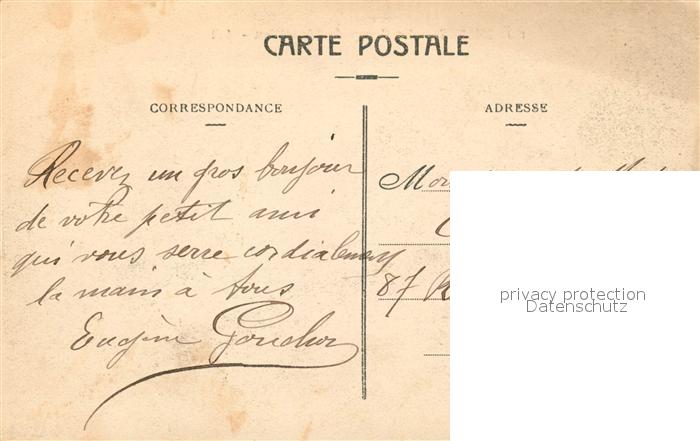 CARTE POSTALE
CORRESPONDANCE
ADRESSE
Recevez un gros bonjour
de votre petit ami
qui vous serre cordialement
la main à tous
Eugène
87
privacy protection
Datenschutz